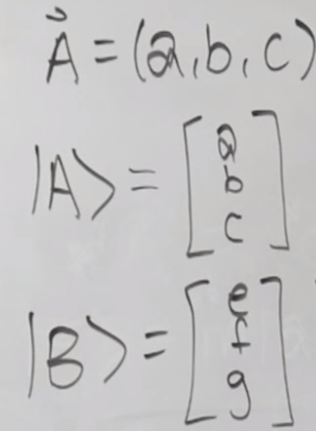 Å = (a, b, c)
|A⟩ = [a
b
c]
|B⟩ = [e
f
g]